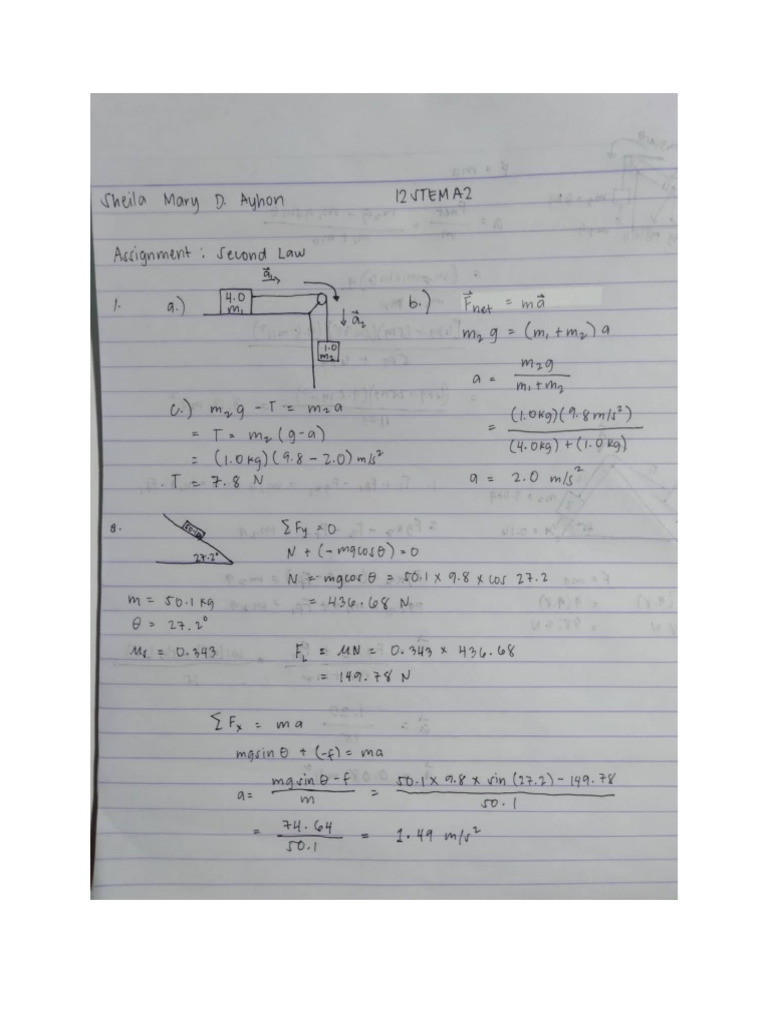 Sheila Mary D. Ayhon 12 STEM A2
Assignment : Second Law
1. a.)
a⃗₁
4.0
m₁
a⃗₂
1.0
m₂
b.) F⃗net = ma⃗
m₂g = (m₁ + m₂) a
a = m₂g / m₁ + m₂
= (1.0 kg)(9.8 m/s²) / (4.0 kg) + (1.0 kg)
a = 2.0 m/s²
c.) m₂g - T = m₂a
= T = m₂ (g-a)
= (1.0 kg) (9.8 - 2.0) m/s²
T = 7.8 N
27.2°
m = 50.1 kg
θ = 27.2°
= 0.343
ΣFy = 0
N + (-mgcosθ) = 0
N = mgcosθ = 50.1 x 9.8 x cos 27.2
= 436.68 N
= μN = 0.343 x 436.68
= 149.78 N
ΣFx = ma
mgsinθ + (-f) = ma
a = mgsinθ - f / m = 50.1 x 9.8 x sin (27.2) - 149.78 / 50.1
= 74.64 / 50.1 = 1.49 m/s²